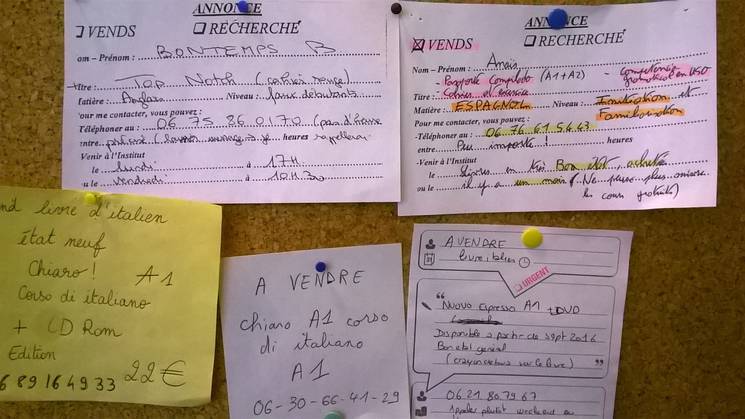 ANNONCE
❑ VENDS ❑ RECHERCHE
om - Prénom : BONTEMPS B
Titre : Top Notch (cahier rouge)
atière : Anglais Niveau : faux débutants
our me contacter, vous pouvez :
Téléphoner au : 06 75 86 01 70 (pas d'heure
entre précise (laisser message je heures rappellerai
Venir à l'Institut
le lundi à 17H
u le vendredi à 10H30
ANNONCE
☒ VENDS ❑ RECHERCHE
Nom - Prénom : Anais
- (A1+A2) - Compétence
Titre : en USO
Matière : ESPAGNOL Niveau : et
Pour me contacter, vous pouvez :
-Téléphoner au : 06 76 61 54 43
entre Peu importe ! heures
-Venir à l'Institut
le livres en très Bon état, acheté
ou le il y a un mois (Ne pense plus suivre
les cours
nd livre d'italien
état neuf
Chiaro ! A1
Corso di italiano
+ CD Rom
Edition
6 89 16 49 33 22 €
A VENDRE
chiaro A1 corso
di italiano
A1
06-30-66-41-29
A VENDRE
livre italien
❑ URGENT
“ Nuovo Espresso A1 + DVD
Disponible a partir de sept 2016
Bon etat général
(crayonnations sur le livre) ”
06.21.80.79.67
Appeler plutôt weekend ou